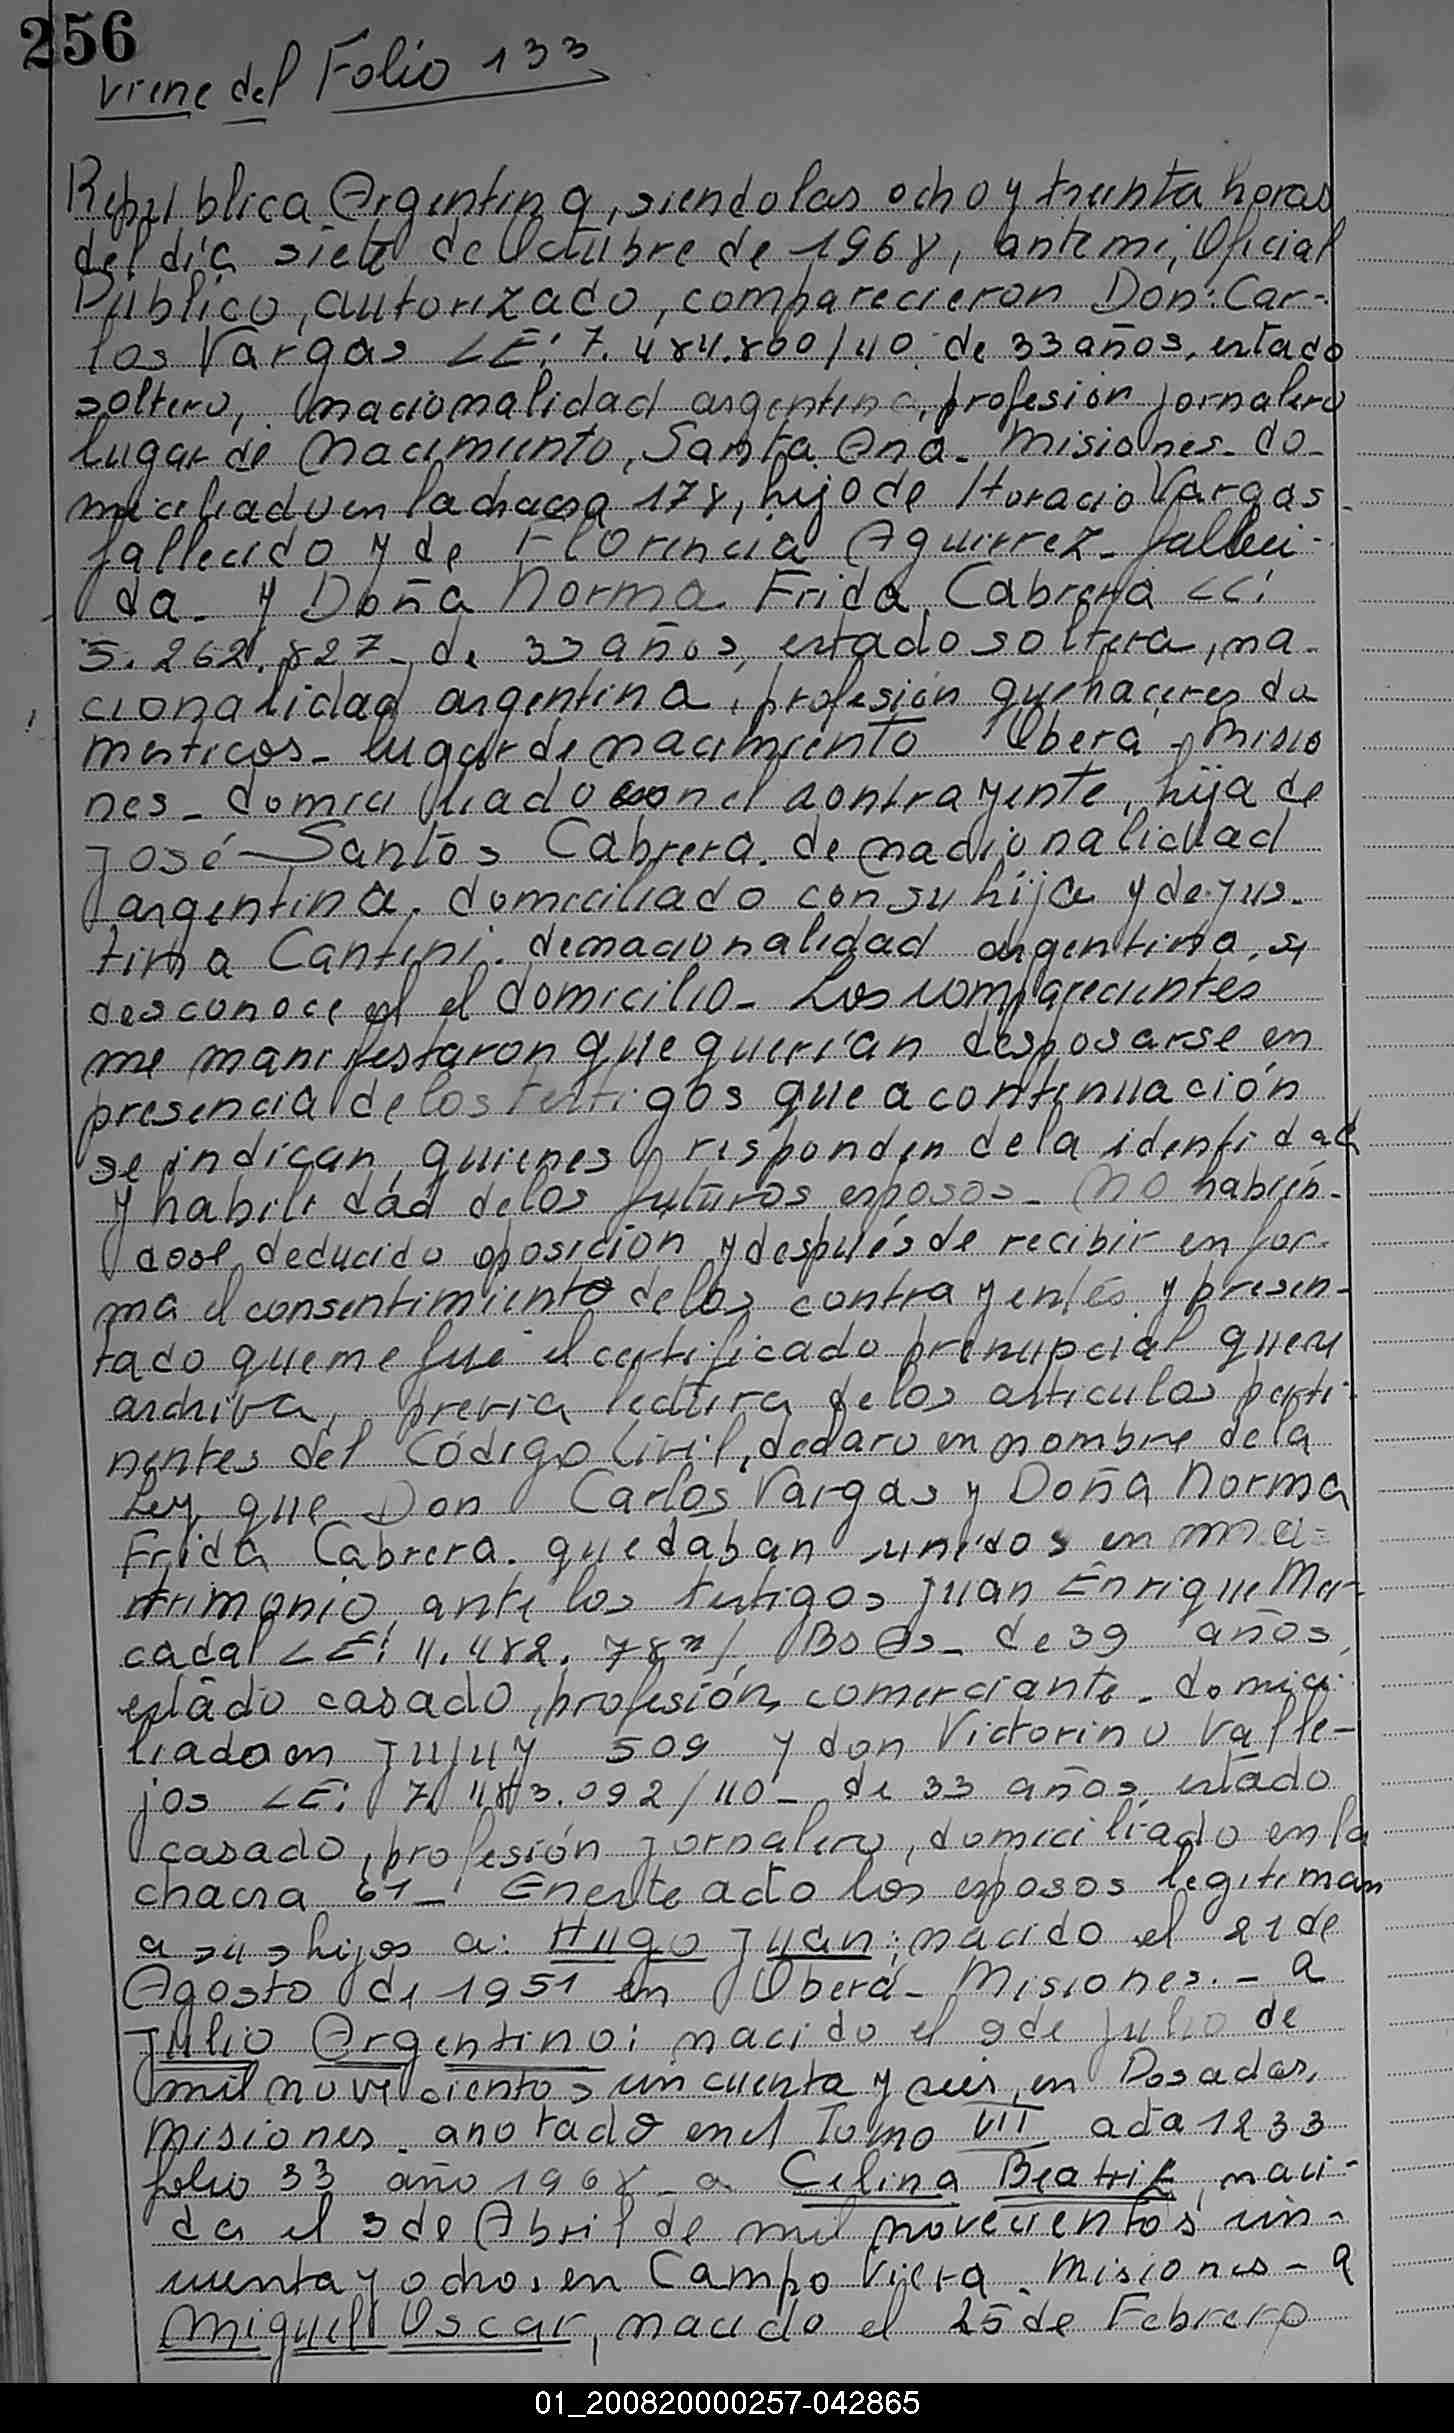 256
viene del Folio 133
República Argentina, siendo las ocho y treinta horas
del día siete de Octubre de 1968, ante mi, Oficial
Público, autorizado, comparecieron Don: Car-
los Vargas LE: 7.484.860/40 de 33 años, estado
soltero, nacionalidad argentina, profesión jornalero
lugar de nacimiento, Santa Ana - Misiones - do-
miciliado en la chacra 178, hijo de Horacio Vargas -
fallecido y de Florencia Aguirrez - falleci-
da - y Doña Norma Frida Cabrera LC:
5.262.827 - de 33 años, estado soltera, na-
cionalidad argentina, profesión quehaceres do
mésticos - lugar de nacimiento Oberá - Misio
nes - domiciliado con el contrayente, hija de
José Santos Cabrera. de nacionalidad
argentina. domiciliado con su hija y de Jus-
tina Cantini. de nacionalidad argentina, se
desconoce el domicilio - Los comparecientes
me manifestaron que querían desposarse en
presencia de los testigos que a continuación
se indican, quienes responden de la identidad
y habilidad de los futuros esposos - No habién-
dose deducido oposición y después de recibir en for-
ma el consentimiento de los contrayentes y presen-
tado que me fué el certificado prenupcial que se
archiva, previa lectura de los artículos perti-
nentes del Código Civil, declaro en nombre de la
Ley que Don Carlos Vargas y Doña Norma
Frida Cabrera. quedaban unidos en ma-
trimonio, ante los testigos Juan Enrique Mer-
cadal LE: 4.482. Bs As - de 39 años,
estado casado, profesión comerciante - domici-
liado en Jujuy 509 y don Victorino Valle-
jos LE: 7.483.092/40 - de 33 años, estado
casado, profesión jornalero, domiciliado en la
chacra 61 - En este acto los esposos legitiman
a sus hijos a: Hugo Juan: nacido el 21 de
Agosto de 1951 en Oberá - Misiones. - a
Julio Argentino: nacido el 9 de Julio de
mil novecientos cincuenta y seis, en Posadas,
Misiones - anotado en el Tomo VII acta 1233
folio 33 año 1968 - a Celina Beatriz, naci-
da el 3 de Abril de mil novecientos cin-
cuenta y ocho, en Campo Viera - Misiones - a
Miguel Oscar, nacido el 25 de Febrero
01_200820000257-042865